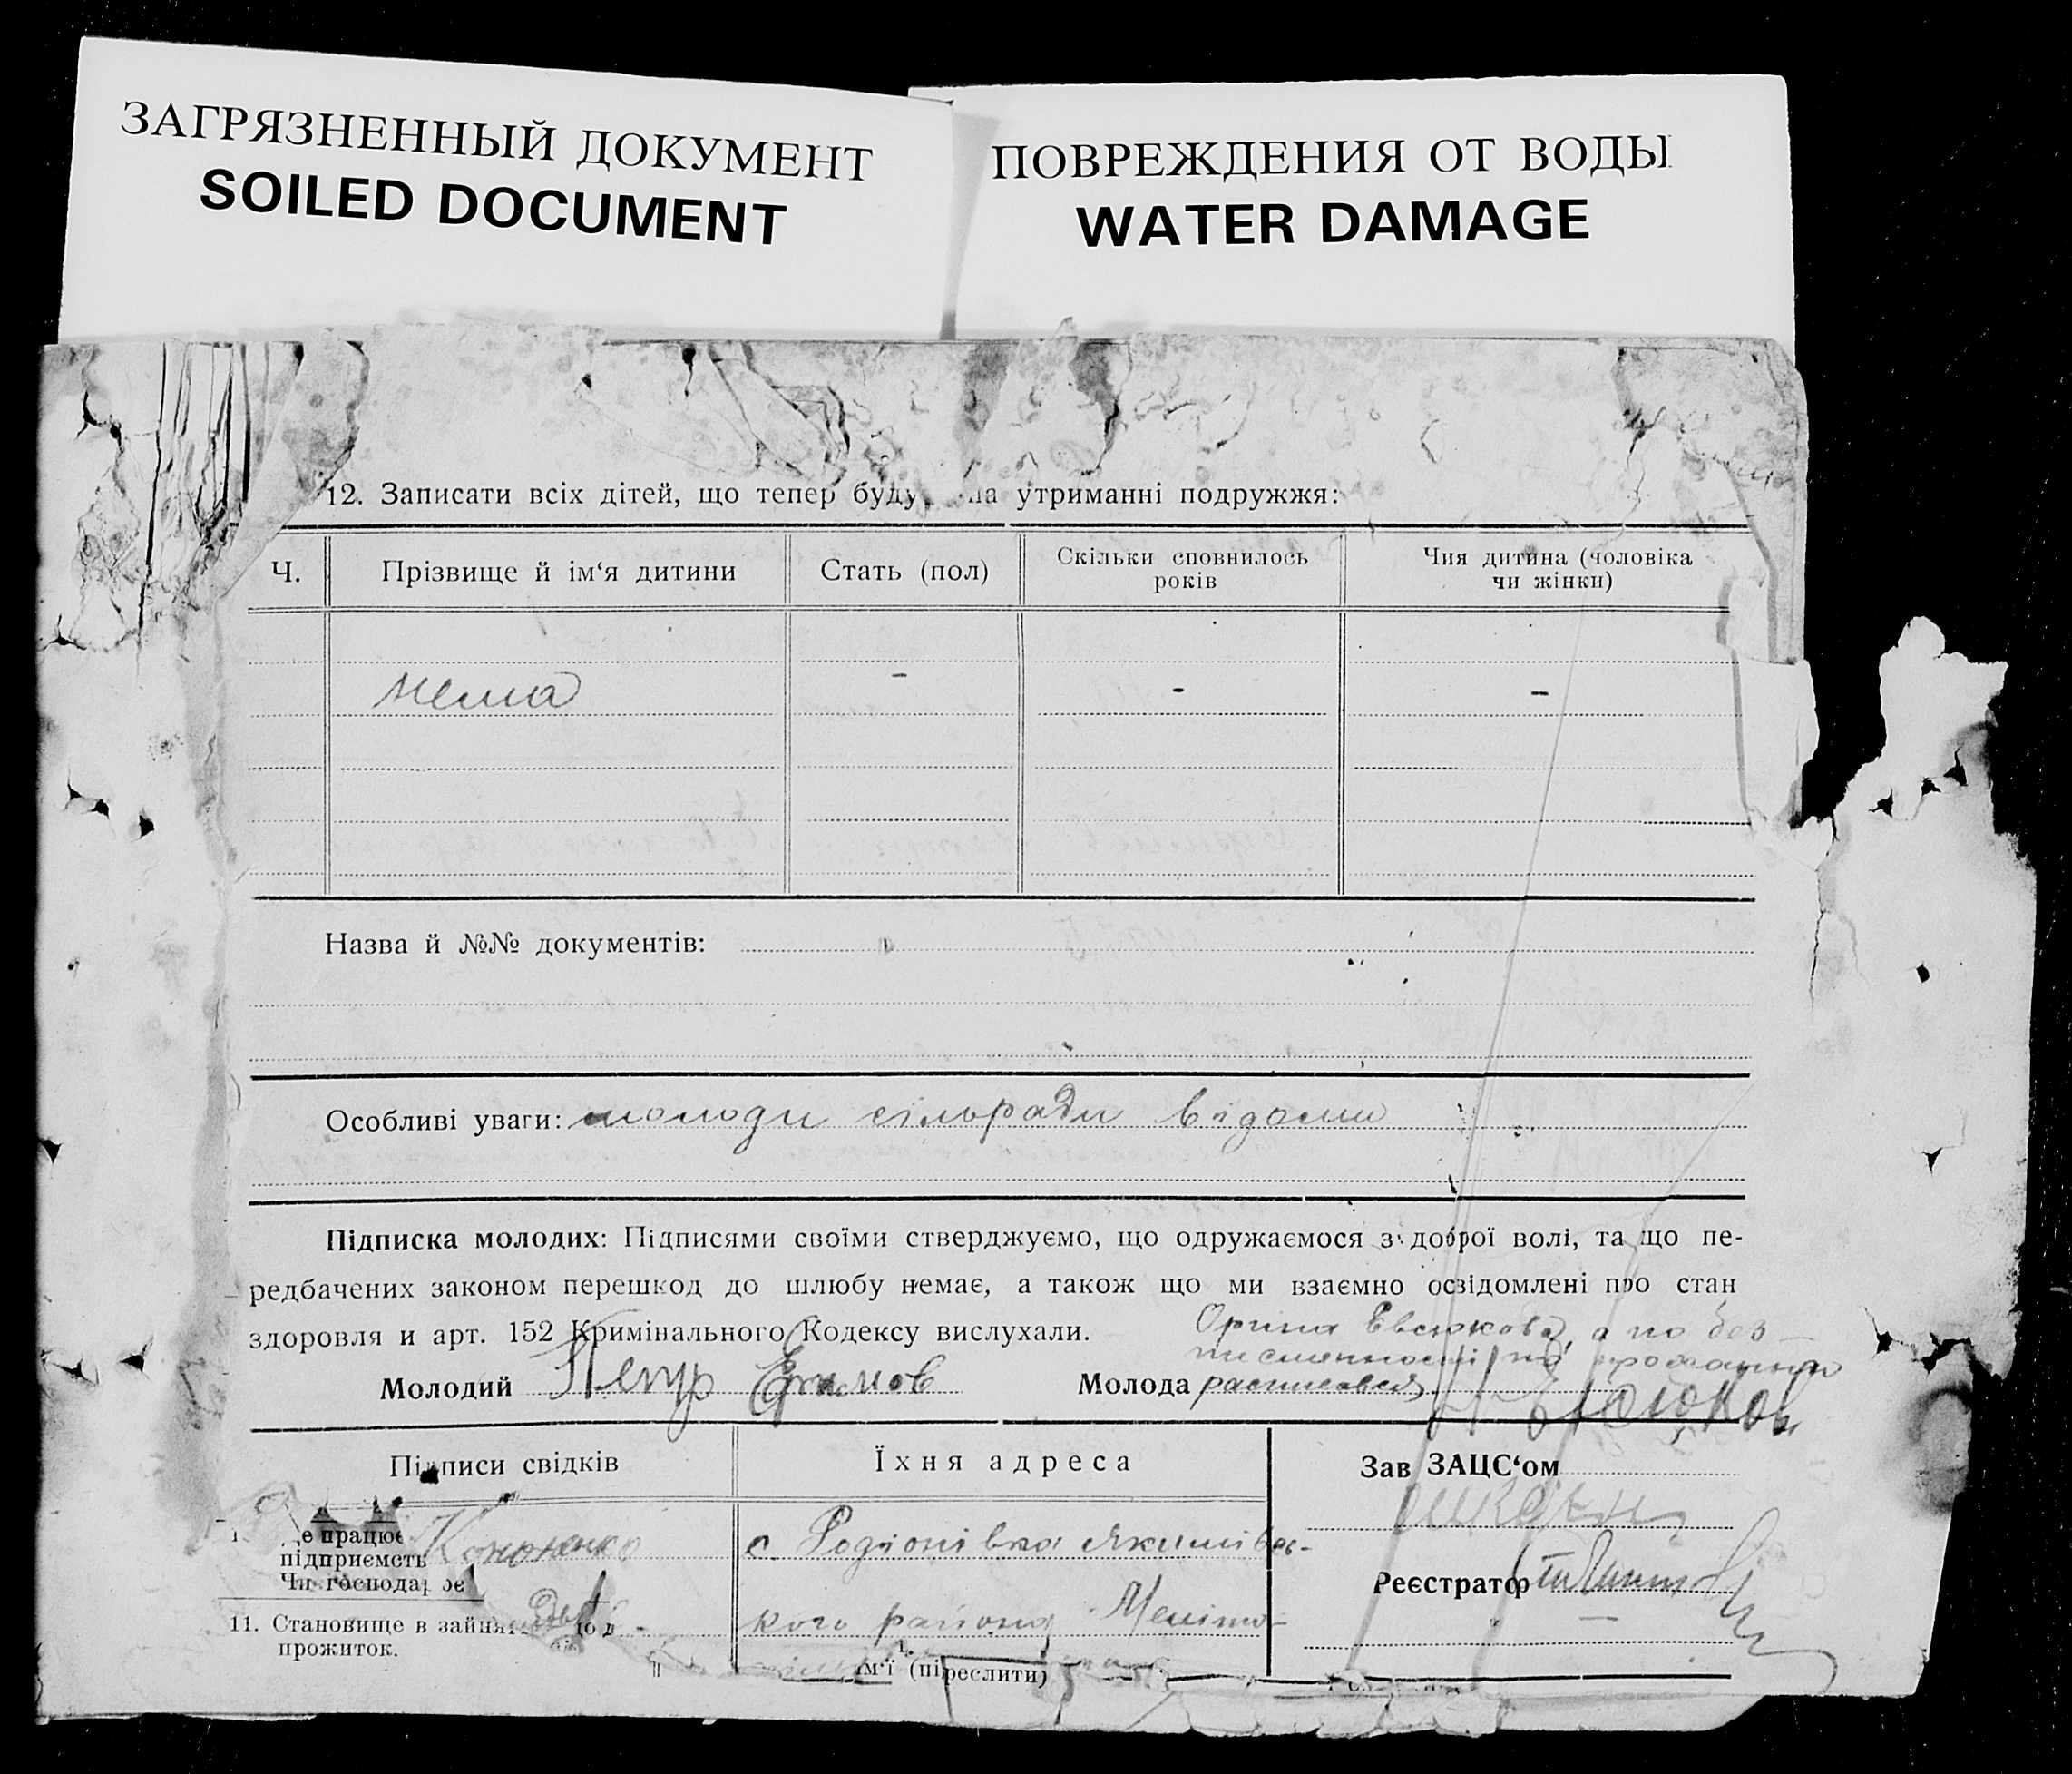 ЗАГРЯЗНЕННЫЙ ДОКУМЕНТ
SOILED DOCUMENT
ПОВРЕЖДЕНИЯ ОТ ВОДЫ
WATER DAMAGE
12. Записати всіх дітей, що тепер утриманні подружжя:
Ч.
Прізвище й ім‘я дитини
Стать (пол)
Скільки сповнилось
років
Чия дитина (чоловіка
чи жінки)
нема - - -
Назва й №№ документів:
Особливі уваги: молоди сільради відоми
Підписка молодих: Підписями своїми стверджуємо, що одружаємося з доброї волі, та що пе-
редбачених законом перешкод до шлюбу немає, а також що ми взаємно освідомлені про стан
здоровля и арт. 152 Кримінального Кодексу вислухали.
Орина Евсюкова, а по без-
Молодий Петр Ефимов
Молода расписався
Підписи свідків
Їхня адреса
Зав ЗАЦС‘ом
працює
підприємств
Чи господар
с. Родіонівка Якимівсь-
Реєстратор
11. Становище в
прожиток.
кого району Меліто-
(підреслити)